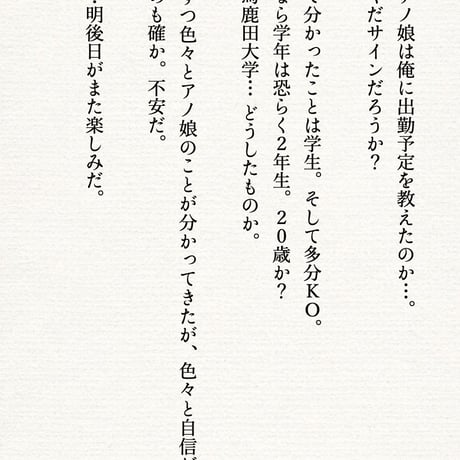 アノ娘は俺に出勤予定を教えたのか…。
だサインだろうか？
で分かったことは学生。そして多分KO。
なら学年は恐らく2年生。20歳か？
馬鹿田大学… どうしたものか。
ずつ色々とアノ娘のことが分かってきたが、色々と自信が
のも確か。不安だ。
・明後日がまた楽しみだ。